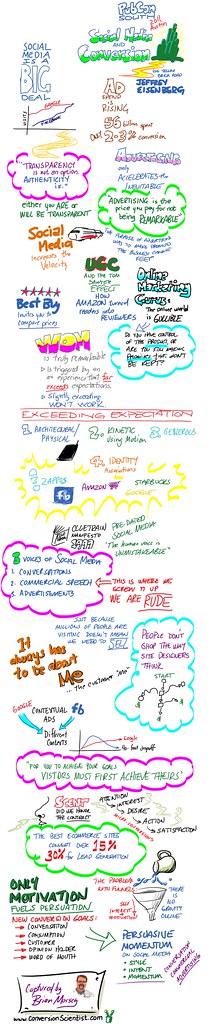 PubCon
SOUTH
Social Media
AND
Conversion
SOCIAL
MEDIA
IS A
BIG
DEAL
JEFFREY
EISENBERG
AD
SPEND
IS
RISING
USERS
Google
Billion
spent
conversion
"TRANSPARENCY
is not an option.
AUTHENTICITY
is."
either you ARE or
WILL BE TRANSPARENT
ADVERTISING
only
ACCELERATES the
INEVITABLE
ADVERTISING is the
price you pay for not
being REMARKABLE"
Social
Media
Increases the
Velocity
UGC
AND THE TOM
SAWYER
EFFECT
HOW
AMAZON turned
readers into
REVIEWERS
Online
Marketing
Gurus:
The online
world is
SOLUBLE
Best Buy
Invites you to
compare prices
WOM
is Truly Remarkable
is triggered by an
an experience that far
exceeds expectations.
slightly exceeding
WON'T WORK
DO YOU HAVE
CONTROL OF THE
PRODUCT, OR
ARE YOU MAKING
PROMISES THAT WON'T
BE KEPT?
EXCEEDING EXPECTATION
1 ARCHITECTURAL/
PHYSICAL
2. KINETIC
Using Motion
3 GENEROUS
4. IDENTITY
Associations
ZAPPOS
fb
AMAZON
STARBUCKS
GOOGLE
CLUETRAIN
MANIFESTO
PRE-DATED
SOCIAL MEDIA
"The human voice is
UNMISTAKEABLE"
3 VOICES OF SOCIAL MEDIA
1. CONVERSATIONS
2. COMMERCIAL SPEECH
3. ADVERTISEMENTS
THIS IS WHERE
WE SCREW IT UP
WE ARE RUDE
It
always has
to be about
Me
... the customer "me"
JUST BECAUSE
MILLIONS OF PEOPLE ARE
VISITING DOESN'T MEAN
WE NEED TO
SELL
PEOPLE DON'T
SHOP THE WAY
SITE DESIGNERS
THINK
START
GOOGLE
fb
CONTEXTUAL
ADS
Different
Contexts
Google
fb
"FOR YOU TO ACHIEVE YOUR GOALS
VISITORS MUST FIRST ACHIEVE THEIRS"
SCENT
DID WE HAVE
THE CONTRACT
ATTENTION
INTEREST
DESIRE
ACTION
SATISFACTION
THE BEST ECOMMERCE SITES
CONVERT OVER 15%
30% for LEAD GENERATION
ONLY
MOTIVATION
FUELS PERSUASION
THE PROBLEM
WITH FUNNELS
THERE
IS NO
GRAVITY
ONLINE
SELF INTEREST
MOTIVATION
NEW CONVERSION GOALS:
CONVERSATION
CONSUMATION
CUSTOMER
OPINION HOLDER
WORD OF MOUTH
PERSUASIVE
MOMENTUM
ON SOCIAL MEDIA
STYLE
INTENT
MOMENTUM
CONVERSATION
COMMERCIAL
ADVERTISING
Captured by
Brian Massey
www.ConversionScientist.com